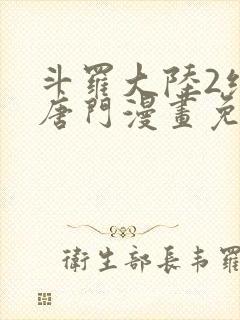 斗羅大陸2
唐門漫畫免
衛生部長韦羅